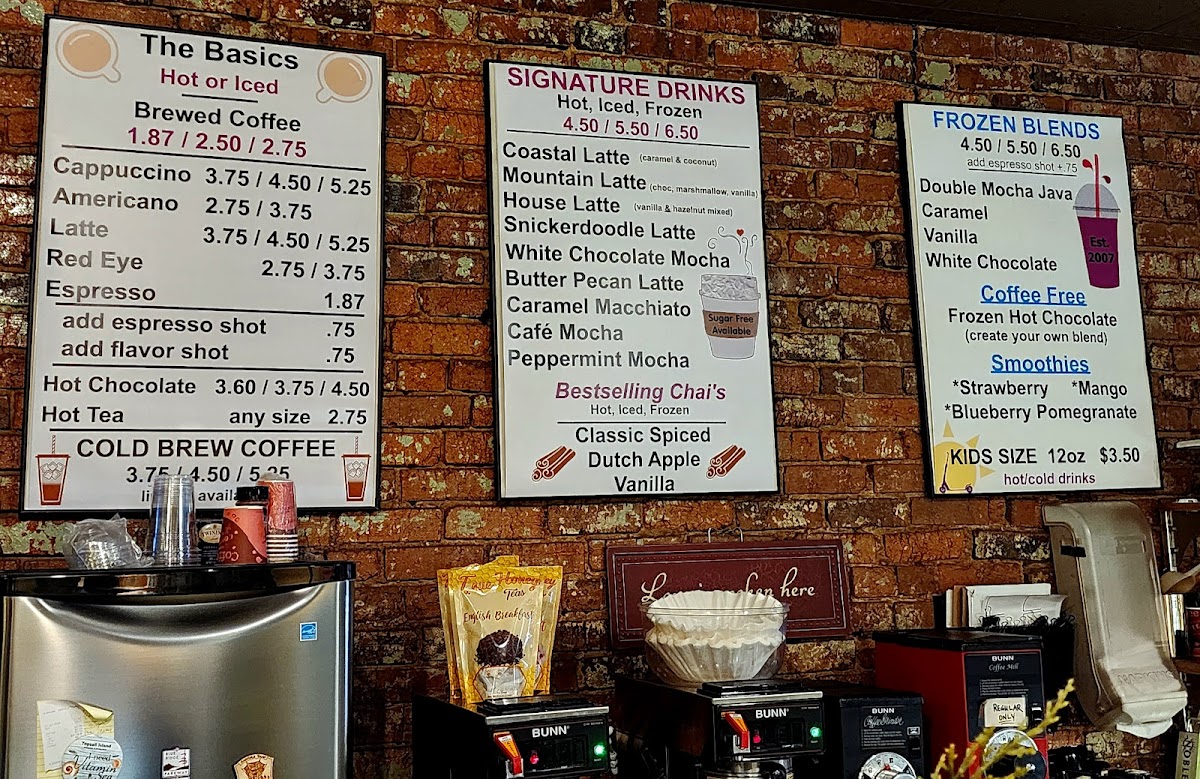 The Basics
Hot or Iced
Brewed Coffee
1.87 / 2.50 / 2.75
Cappuccino 3.75 / 4.50 / 5.25
Americano 2.75 / 3.75
Latte 3.75 / 4.50 / 5.25
Red Eye 2.75 / 3.75
Espresso 1.87
add espresso shot .75
add flavor shot .75
Hot Chocolate 3.60 / 3.75 / 4.50
Hot Tea any size 2.75
COLD BREW COFFEE
3.75 / 4.50 / 5.25
SIGNATURE DRINKS
Hot, Iced, Frozen
4.50 / 5.50 / 6.50
Coastal Latte (caramel & coconut)
Mountain Latte (choc, marshmallow, vanilla)
House Latte (vanilla & hazelnut mixed)
Snickerdoodle Latte
White Chocolate Mocha
Butter Pecan Latte
Caramel Macchiato
Café Mocha
Peppermint Mocha
Sugar Free
Available
Bestselling Chai's
Hot, Iced, Frozen
Classic Spiced
Dutch Apple
Vanilla
FROZEN BLENDS
4.50 / 5.50 / 6.50
add espresso shot +.75
Double Mocha Java
Caramel
Vanilla
White Chocolate
Est.
2007
Coffee Free
Frozen Hot Chocolate
(create your own blend)
Smoothies
*Strawberry *Mango
*Blueberry Pomegranate
KIDS SIZE 12oz $3.50
hot/cold drinks
Teas
English Breakfast
here
BUNN
BUNN
BUNN
BUNN
Coffee Mill
REGULAR
ONLY
Topsail Island
I need
Vitamin
Sea